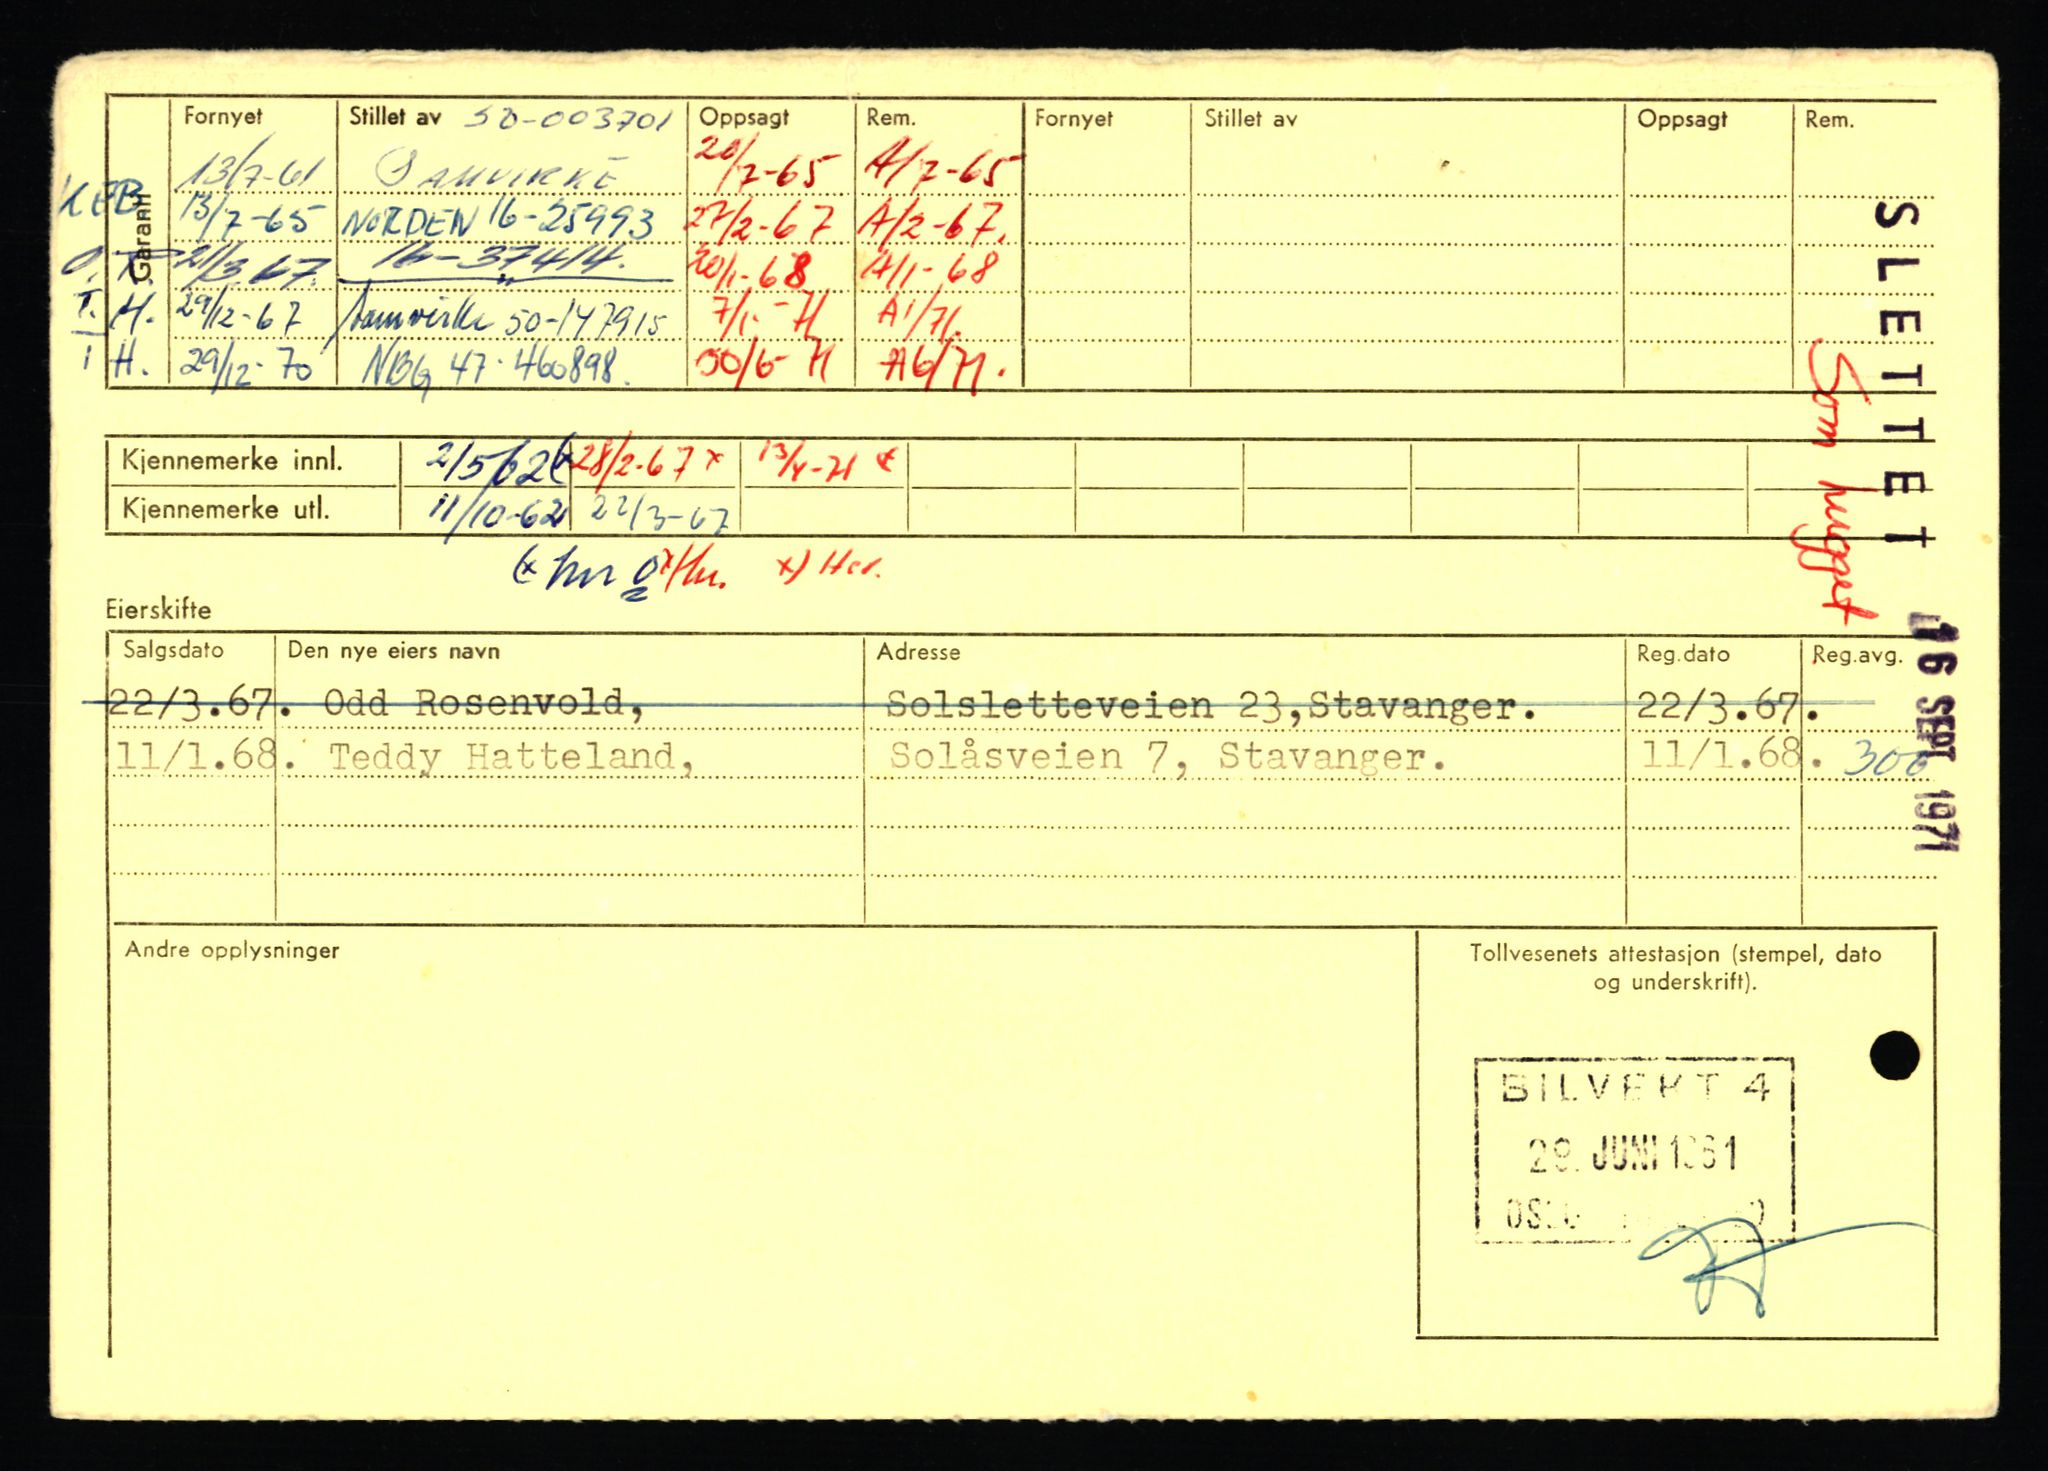 Garanti
Fornyet Stillet av 50-003701 Oppsagt Rem. Fornyet Stillet av Oppsagt Rem.
13/7-61 SAMVIRKE 20/7-65 A/7-65
KEB 13/7-65 NORDEN 16-25993 27/2-67 A/2-67.
21/3 67. 16-37414. 20/1-68 A/1-68
T. H. 29/12-67 Samvirke 50-147915 7/1-71 A1/71.
T H. 29/12-70 NBG 47-460898. 30/6-71 A6/71.
Kjennemerke innl. 2/5/62 (x 28/2-67 x 13/4-71 x
Kjennemerke utl. 11/10-62 22/3-67
(x hnr x/Hn. x) Her.
Eierskifte
Salgsdato Den nye eiers navn Adresse Reg.dato Reg.avg.
22/3.67. Odd Rosenvold, Solsletteveien 23,Stavanger. 22/3.67.
11/1.68. Teddy Hatteland, Solåsveien 7, Stavanger. 11/1.68. 300
Andre opplysninger
Tollvesenets attestasjon (stempel, dato
og underskrift).
BILVERT 4
28. JUNI 1961
OSLO
SLETTET 16 SEPT 1971
Som hugget